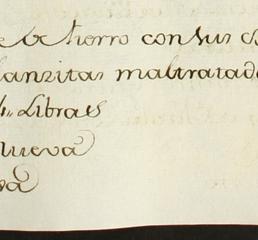 de hierro con sus
lanzitas maltratad
4,, Libras
nueva
va